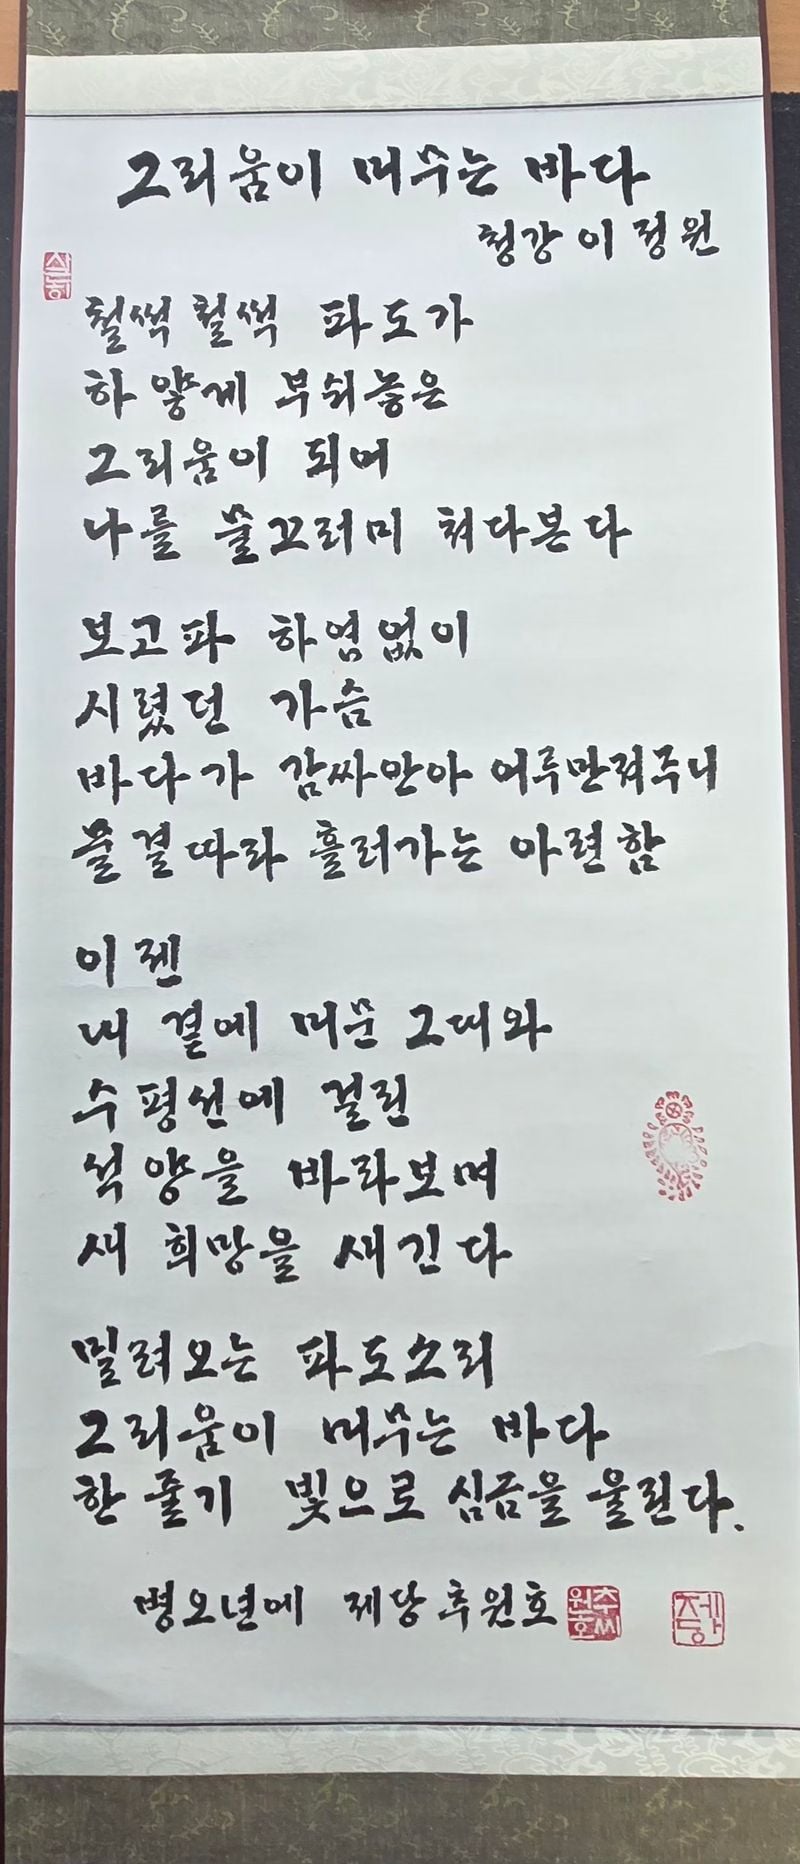 그리움이 머무는 바다
청강 이정원
철썩철썩 파도가
하얗게 부숴놓은
그리움이 되어
나를 물끄러미 쳐다본다
보고파 하염없이
시렸던 가슴
바다가 감싸안아 어루만져주니
물결따라 흘러가는 아련함
이젠
내 곁에 머문 그대와
수평선에 걸린
석양을 바라보며
새 희망을 새긴다
밀려오는 파도소리
그리움이 머무는 바다
한 줄기 빛으로 심금을 울린다.
병오년에 제당 추원호